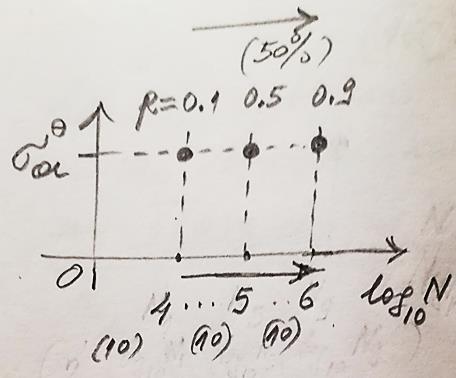 (50%)
R=0.1 0.5 0.9
σₐᶿ
0
4 ... 5 .. 6 log₁₀N
(10) (10) (10)